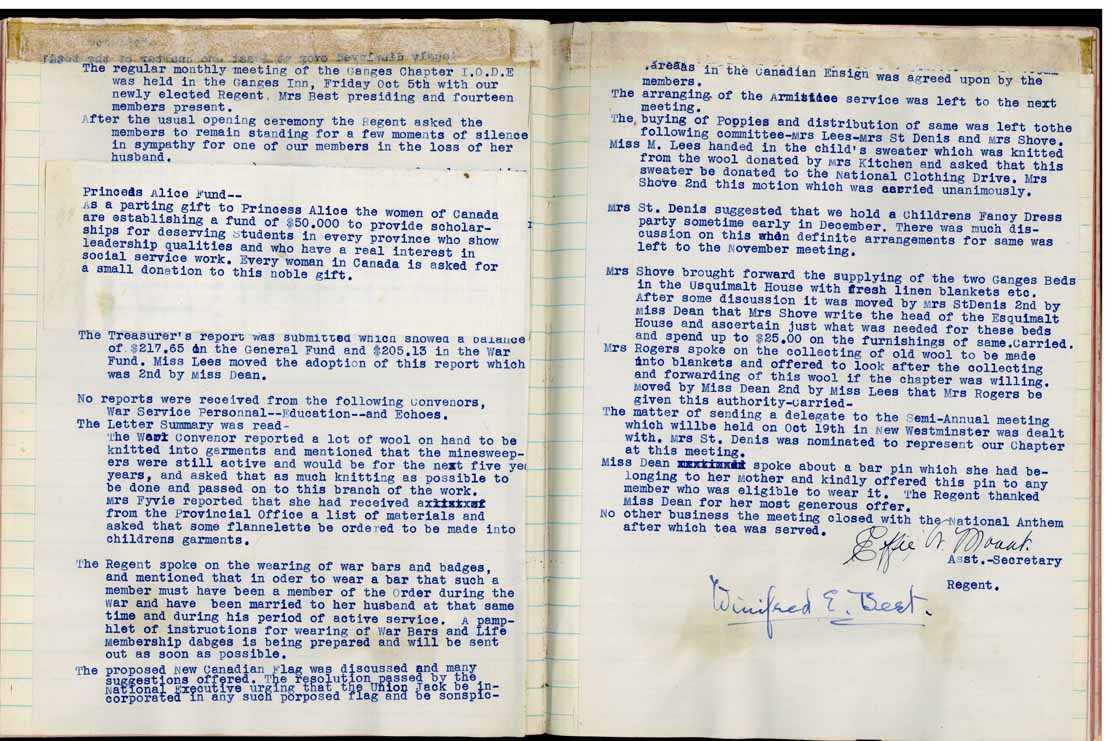 The regular monthly meeting of the Ganges Chapter I.O.D.E
was held in the Ganges Inn, Friday Oct 5th with our
newly elected Regent. Mrs Best presiding and fourteen
members present.
After the usual opening ceremony the Regent asked the
members to remain standing for a few moments of silence
in sympathy for one of our members in the loss of her
husband.
Princeds Alice Fund--
As a parting gift to Princess Alice the women of Canada
are establishing a fund of $50.000 to provide scholar-
ships for deserving Students in every province who show
leadership qualities and who have a real interest in
social service work. Every woman in Canada is asked for
a small donation to this noble gift.
The Treasurer's report was submitted which showed a balance
of $217.65 in the General Fund and $205.13 in the War
Fund. Miss Lees moved the adoption of this report which
was 2nd by Miss Dean.
No reports were received from the following Convenors,
War Service Personnal--Education--and Echoes.
The Letter Summary was read-
The Wool Convenor reported a lot of wool on hand to be
knitted into garments and mentioned that the minesweep-
ers were still active and would be for the next five ye
years, and asked that as much knitting as possible to
be done and passed on to this branch of the work.
Mrs Fyvie reported that she had received
from the Provincial Office a list of materials and
asked that some flannelette be ordered to be made into
childrens garments.
The Regent spoke on the wearing of war bars and badges,
and mentioned that in oder to wear a bar that such a
member must have been a member of the Order during the
war and have been married to her husband at that same
time and during his period of active service. A pamp-
hlet of instructions for wearing of War Bars and Life
Membership dabges is being prepared and will be sent
out as soon as possible.
The proposed New Canadian Flag was discussed and many
suggestions offered. The resolution passed by the
National Executive urging that the Union Jack be in-
corporated in any such porposed flag and be sonspic-
.areas in the Canadian Ensign was agreed upon by the
members.
The arranging of the Armistice service was left to the next
meeting.
The buying of Poppies and distribution of same was left tothe
following committee-Mrs Lees-Mrs St Denis and Mrs Shove.
Miss M. Lees handed in the child's sweater which was knitted
from the wool donated by Mrs Kitchen and asked that this
sweater be donated to the National Clothing Drive. Mrs
Shove 2nd this motion which was carried unanimously.
Mrs St. Denis suggested that we hold a Childrens Fancy Dress
party sometime early in December. There was much dis-
cussion on this when definite arrangements for same was
left to the November meeting.
Mrs Shove brought forward the supplying of the two Ganges Beds
in the Usquimalt House with fresh linen blankets etc.
After some discussion it was moved by Mrs StDenis 2nd by
Miss Dean that Mrs Shove write the head of the Esquimalt
House and ascertain just what was needed for these beds
and spend up to $25.00 on the furnishings of same.Carried.
Mrs Rogers spoke on the collecting of old wool to be made
into blankets and offered to look after the collecting
and forwarding of this wool if the chapter was willing.
Moved by Miss Dean 2nd by Miss Lees that Mrs Rogers be
given this authority-Carried-
The matter of sending a delegate to the Semi-Annual meeting
which willbe held on Oct 19th in New Westminster was dealt
with. Mrs St. Denis was nominated to represent our Chapter
at this meeting.
Miss Dean spoke about a bar pin which she had be-
longing to her Mother and kindly offered this pin to any
member who was eligible to wear it. The Regent thanked
Miss Dean for her most generous offer.
No other business the meeting closed with the National Anthem
after which tea was served.
Effie A. Mouat.
Asst.-Secretary
Regent.
Winifred E. Best.